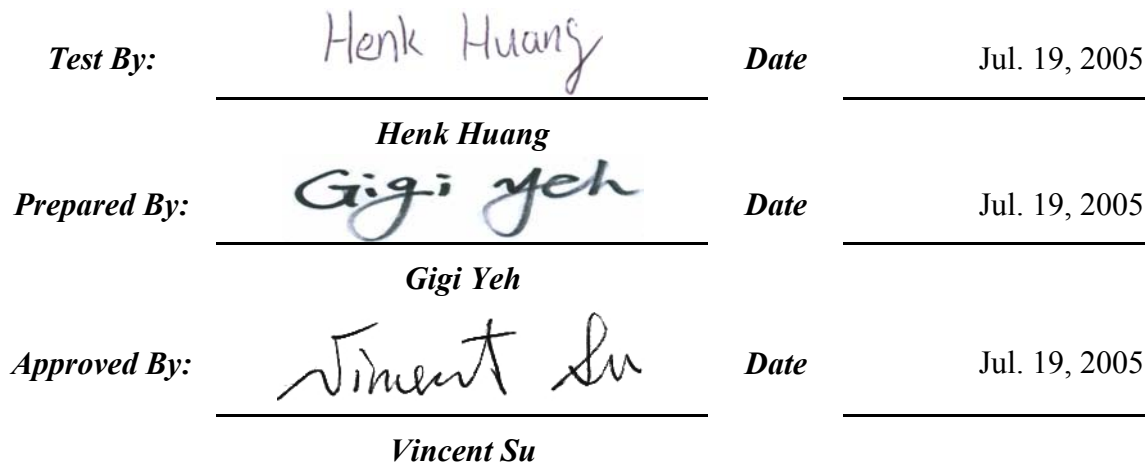 Test By: Henk Huang Date Jul. 19, 2005
Henk Huang
Prepared By: Gigi Yeh Date Jul. 19, 2005
Gigi Yeh
Approved By: Vincent Su Date Jul. 19, 2005
Vincent Su